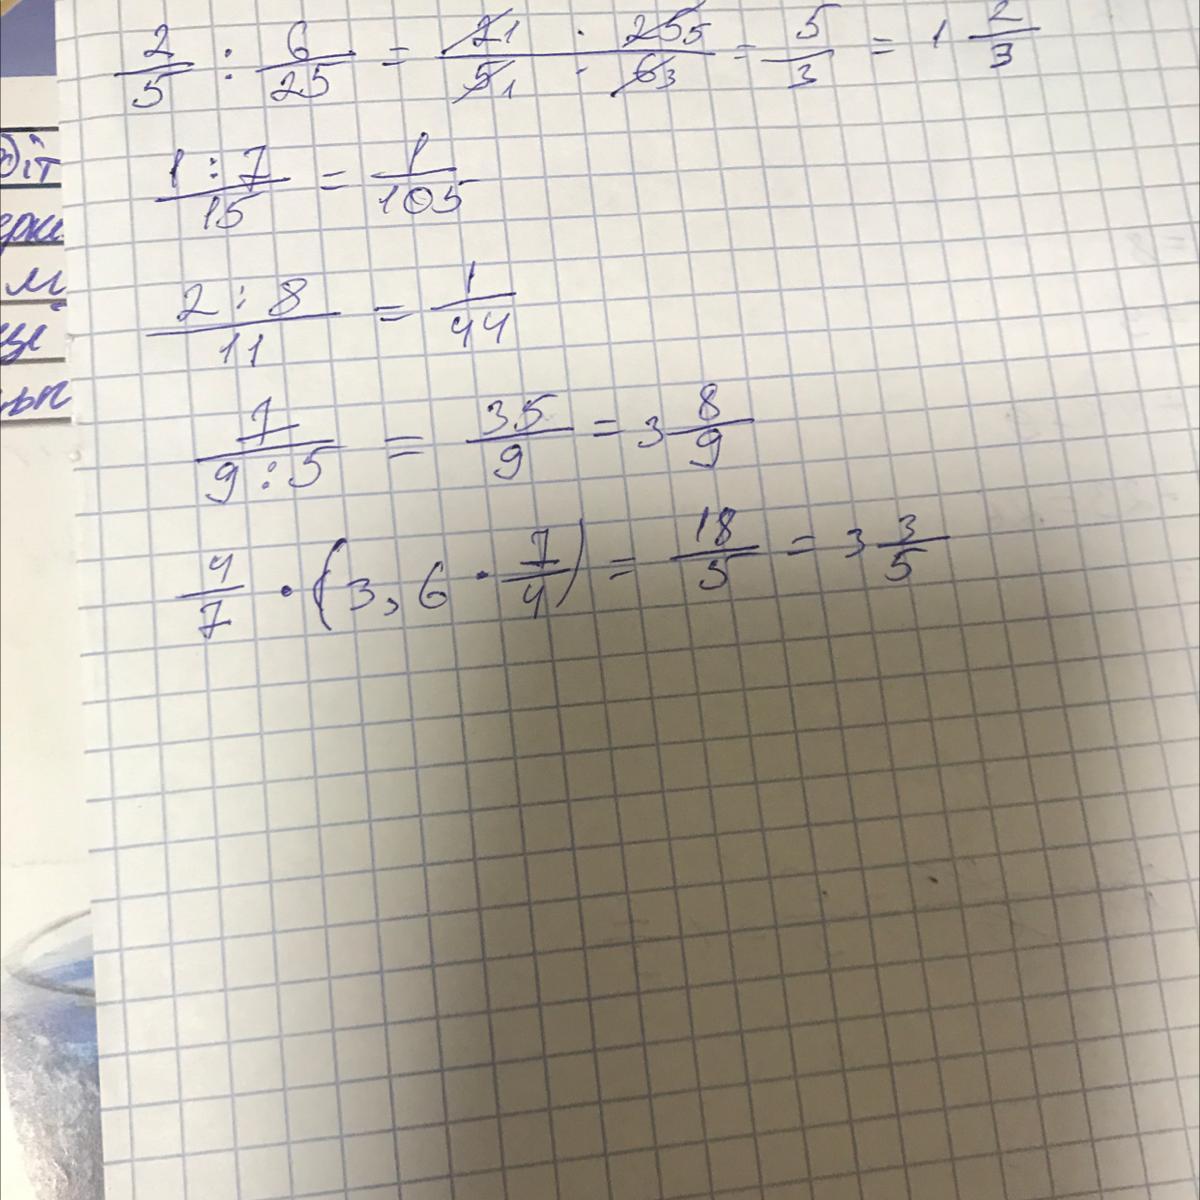 2/5 : 6/25 = (2 1 · 25 5)/(5 1 · 6 3) = 5/3 = 1 2/3
(1 : 7)/15 = 1/105
(2 : 8)/11 = 1/44
7/(9 : 5) = 35/9 = 3 8/9
4/7 · (3,6 · 7/4) = 18/5 = 3 3/5